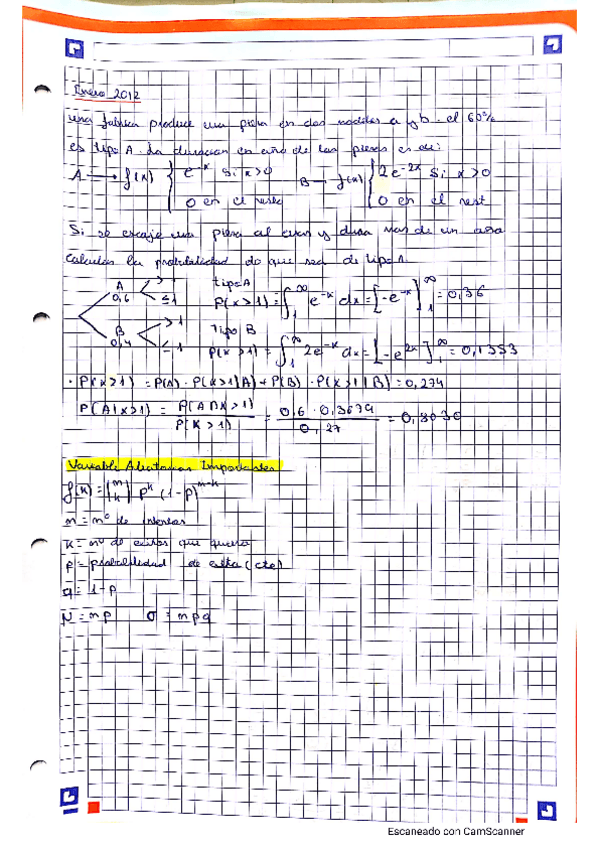 Enero 2012
una fabrica produce una pieza en dos modelos a y b. el 60%
es tipo A. La duracion en año de las piezas es de:
A → f(x) { e^-x si x>0 B → f(x) { 2e^-2x si x>0
0 en el resto 0 en el rest
Si se escoje una pieza al azar y dura mas de un año
Calcular la probabilidad de que sea de tipo A.
A 0,6 >1 ≤1
tipo A
P(x>1) = ∫_1^∞ e^-x dx = [-e^-x]_1^∞ = 0,36
B 0,4 >1 ≤1
Tipo B
P(x>1) = ∫_1^∞ 2e^-x dx = [-e^2x]_1^∞ = 0,1353
· P(x>1) = P(A) · P(x>1|A) + P(B) · P(x>1|B) = 0,274
P(A|x>1) = P(A∩x>1) / P(x>1) = 0,6 · 0,3679 / 0,27 = 0,8030
Variable Aleatorias Importantes
f(k) = (n k) p^k (1-p)^n-k
n = nº de intentos
k = nº de exitos que quiero
p = probabilidad de exito (cte)
q = 1-p
μ = np σ = npq
Escaneado con CamScanner